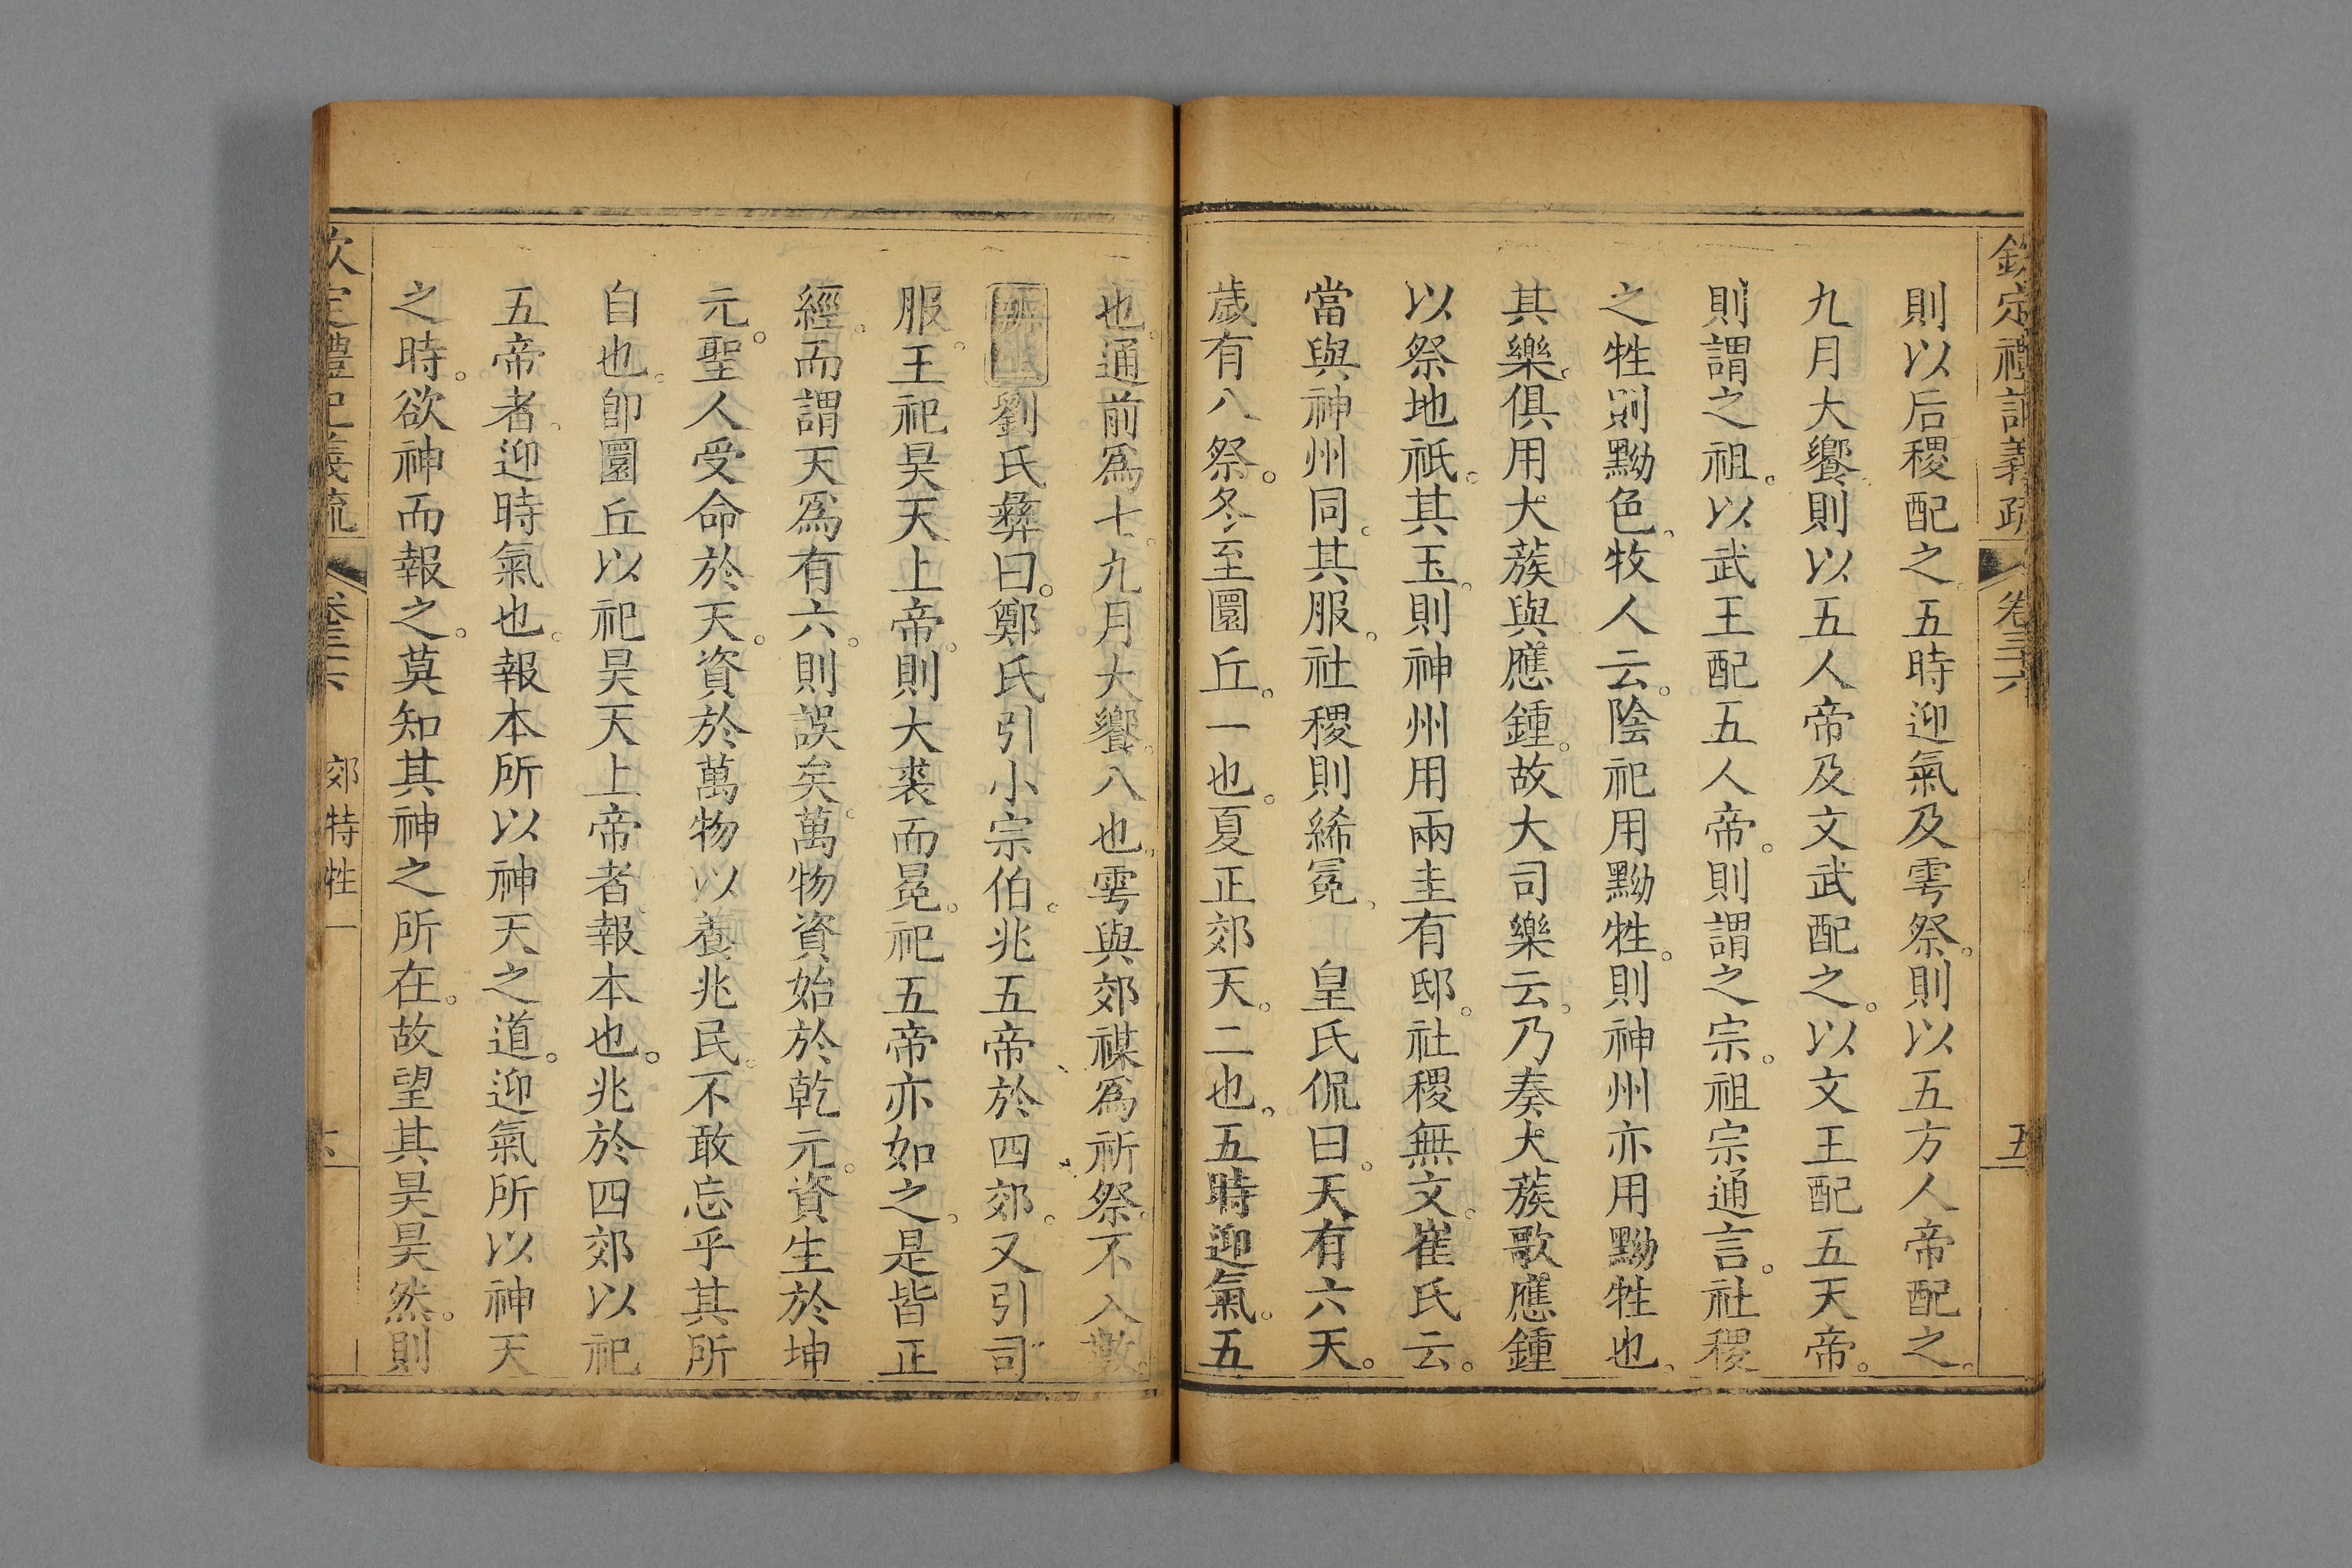 欽定禮記義疏 卷三十六 五
則以后稷配之五時迎氣及雩祭。則以五方人帝配之。
九月大饗。則以五人帝及文武配之。以文王配五天帝。
則謂之祖。以武王配五人帝。則謂之宗。祖宗通言。社稷
之牲則黝色。牧人云。陰祀用黝牲。則神州亦用黝牲也。
其樂。俱用太蔟與應鍾。故大司樂云。乃奏太蔟歌應鍾
以祭地祇。其玉。則神州用兩圭有邸。社稷無文。崔氏云。
當與神州同。其服。社稷則絺冕。 皇氏侃曰。天有六天。
歲有八祭。冬至圜丘。一也。夏正郊天。二也。五時迎氣。五
也。通前爲七。九月大饗。八也。雩與郊禖爲祈祭。不入數。
劉氏彝曰。鄭氏引小宗伯。兆五帝於四郊。又引司
服。王祀昊天上帝。則大裘而冕。祀五帝亦如之。是皆正
經。而謂天爲有六。則誤矣。萬物資始於乾元。資生於坤
元。聖人受命於天。資於萬物以養兆民。不敢忘乎其所
自也。卽圜丘以祀昊天上帝者。報本也。兆於四郊以祀
五帝者。迎時氣也。報本所以神天之道。迎氣所以神天
之時。欲神而報之。莫知其神之所在。故望其昊昊然。則
欽定禮記義疏 卷三十六 郊特牲 六